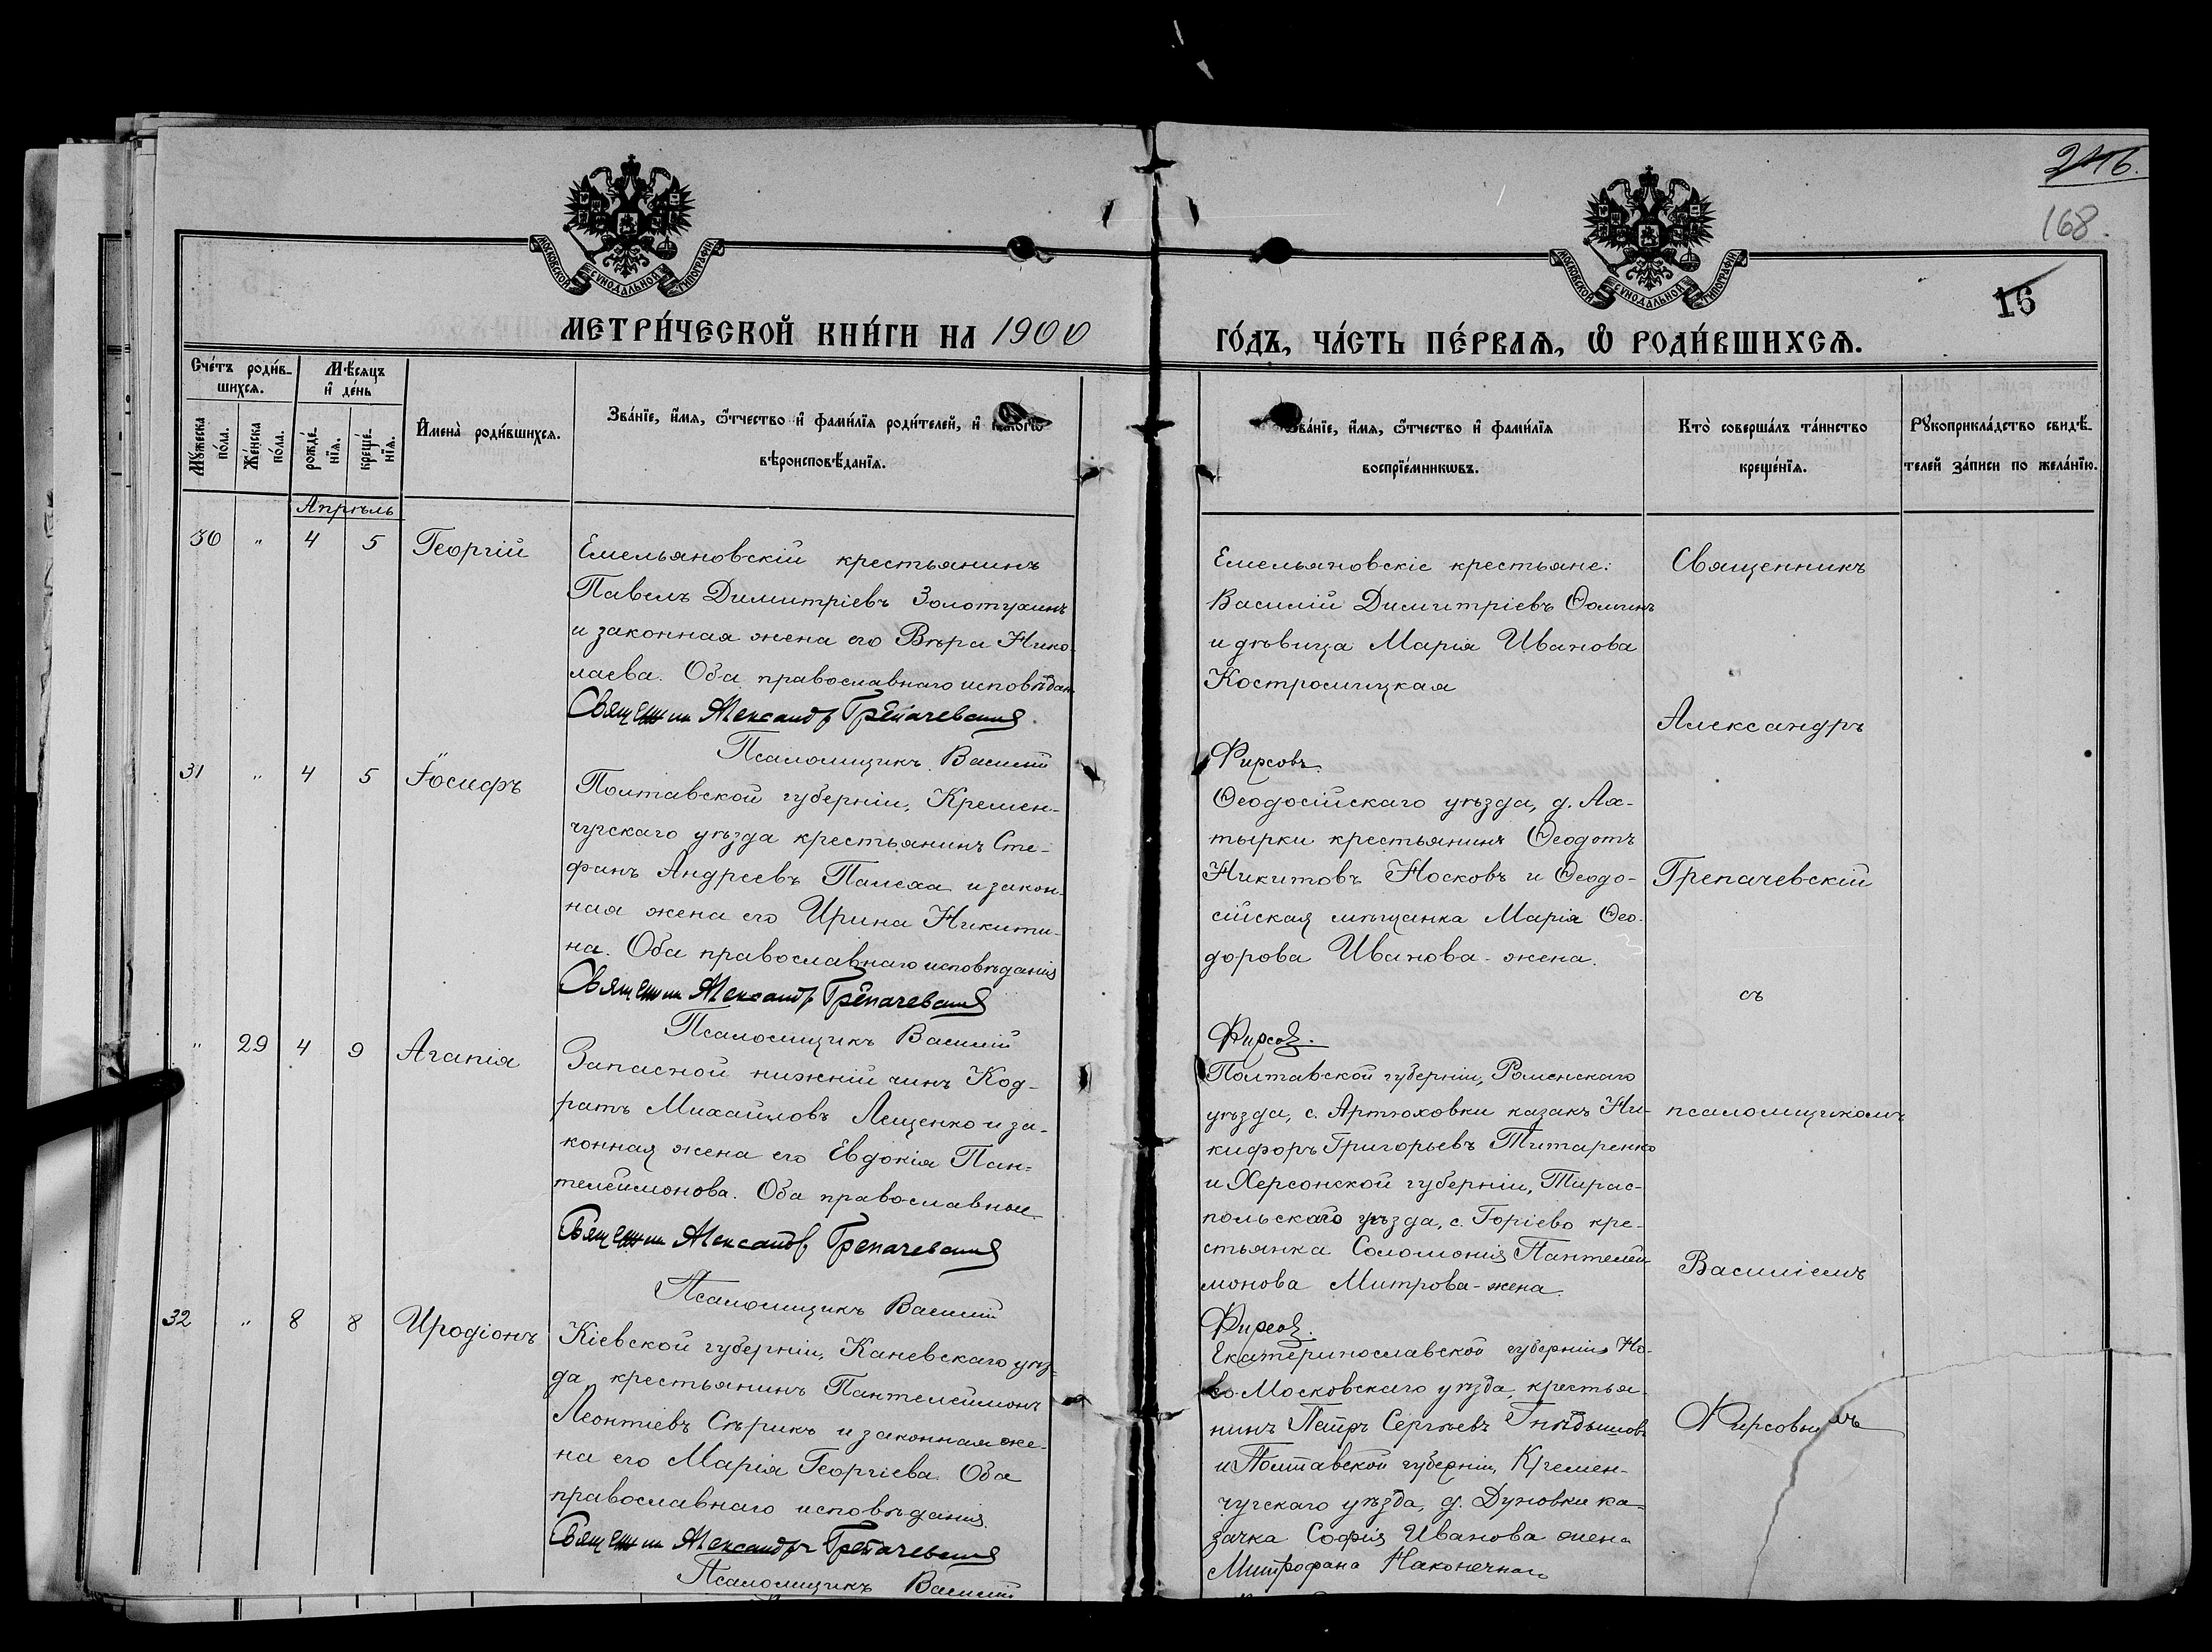 246.
168.
16
МОСКОВСКОЙ СѴНОДАЛЬНОЙ ТИПОГРАФІИ
МОСКОВСКОЙ СѴНОДАЛЬНОЙ ТИПОГРАФІИ
МЕТРИ́ЧЕСКОЙ КНИ́ГИ НА 1900
ГО́ДЪ, ЧА́СТЬ ПЕ́РВАѦ, Ѡ҆ РОДИ́ВШИХСѦ.
Сче́тъ роди́в-
шихсѧ.
Мꙋ́жеска
по́ла.
Же́нска
по́ла.
Мѣ́сѧцъ
и҆ де́нь
рожде́-
нїѧ.
креще́-
нїѧ.
И҆мена̀ роди́вшихсѧ.
Зва́нїе, и҆́мѧ, ѻ҆́тчество и҆ фами́лїѧ роди́телей, и҆
вѣроисповѣ́данїѧ.
Зва́нїе, и҆́мѧ, ѻ҆́тчество и҆ фами́лїѧ
воспрїе́мникѡвъ.
Кто̀ соверша́лъ та́инство
креще́нїѧ.
Рꙋкоприкла́дство свидѣ́-
телей за́писи по жела́нїю.
Апрѣль
30 " 4 5 Георгій
Емельяновскій крестьянинъ
Павелъ Димитріевъ Золотухинъ
и законная жена его Вѣра Нико-
лаева. Оба православнаго исповѣдан.
Священник Александръ Грепачевскій.
Псаломщикъ Василій
Емельяновскіе крестьяне:
Василій Димитріевъ Ѳоминъ
и дѣвица Марія Иванова
Костромицкая
Фирсовъ.
31 " 4 5 Іосифъ
Полтавской губерніи, Кремен-
чугскаго уѣзда крестьянинъ Сте-
фанъ Андреевъ Палеха и закон-
ная жена его Ирина Никити-
на. Оба православнаго исповѣданія
Священник Александръ Грепачевскій
Псаломщикъ Василій
Ѳеодосійскаго уѣзда, д. Ах-
тырки крестьянинъ Ѳеодотъ
Никитовъ Носковъ и Ѳеодо-
сійская мѣщанка Марія Ѳео-
дорова Иванова - жена.
Фирсовъ.
" 29 4 9 Агапія
Запасной нижній чинъ Код-
ратъ Михайловъ Лещенко и за-
конная жена его Евдокія Пан-
телеимонова. Оба православные.
Священник Александръ Грепачевскій
Псаломщикъ Василій
Полтавской губерніи, Роменскаго
уѣзда, с. Артюховки казакъ Ни-
кифоръ Григорьевъ Титаренко
и Херсонской губерніи, Тирас-
польскаго уѣзда, с. Горіево кре-
стьянка Соломонія Пантелеи-
монова Митрова - жена.
Фирсовъ.
32 " 8 8 Иродіонъ
Кіевской губерніи, Каневскаго уѣз-
да крестьянинъ Пантелеимонъ
Леонтіевъ Сѣрикъ и законная же-
на его Марія Георгіева. Оба
православнаго исповѣданія.
Священник Александръ Грепачевскій
Псаломщикъ Василій
Екатеринославской губерніи Но-
во-Московскаго уѣзда, крестья-
нинъ Петръ Сергѣевъ Гнѣдышовъ
и Полтавской губерніи, Кремен-
чугскаго уѣзда, д. Духовки ка-
зачка Софія Иванова жена
Митрофана Наконечнаго
Священникъ
Александръ
Грепачевскій
съ
псаломщикомъ
Василіемъ
Фирсовымъ